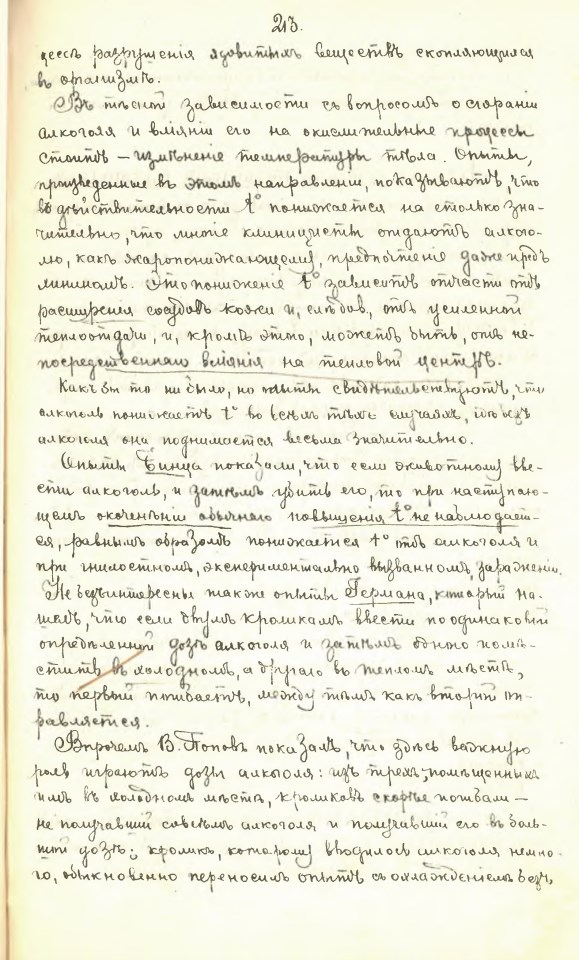 213.
цессъ разрушенія ядовитыхъ веществъ скопляющихся
въ организмѣ.
Въ тѣсной зависимости съ вопросомъ о сгораніи
алкоголя и вліяніи его на окислительные процессы
стоитъ – измѣненіе температуры тѣла. Опыты,
произведенные въ этомъ направленіи, показываютъ, что
въ дѣйствительности t° понижается на столько зна-
чительно, что многіе клиницисты отдаютъ алкого-
лю, какъ жаропонижающему, предпочтеніе даже предъ
хининомъ. Это пониженіе t° зависитъ отчасти отъ
расширенія сосудовъ кожи и, слѣдов., отъ усиленной
теплоотдачи, и, кромѣ этого, можетъ быть, отъ не-
посредственнаго вліянія на тепловой центръ.
Какъ бы то ни было, но опыты свидѣтельствуютъ, что
алкоголь понижаетъ t° во всѣхъ тѣхъ случаяхъ, гдѣ безъ
алкоголя она поднимается весьма значительно.
Опыты Бинца показали, что если животному вве-
сти алкоголь, и затѣмъ убить его, то при наступаю-
щемъ окоченѣніи обычнаго повышенія t° не наблюдает-
ся, равнымъ образомъ понижается t° отъ алкоголя и
при гнилостномъ, экспериментально вызванномъ, зараженіи.
Не безъинтересны также опыты Германа, который на-
шелъ, что если двумъ кроликамъ ввести по одинаковой
опредѣленной дозѣ алкоголя и затѣмъ одного помѣ-
стить въ холодномъ, а другаго въ тепломъ мѣстѣ,
то первый погибаетъ, между тѣмъ какъ второй оп-
равляется.
Впрочемъ В. Поповъ показалъ, что здѣсь важную
роль играютъ дозы алкоголя: изъ трехъ помѣщенныхъ
имъ въ холодномъ мѣстѣ, кроликовъ скорѣе погибали –
не получавшій совсѣмъ алкоголя и получавшій его въ боль-
шой дозѣ; кроликъ, которому вводилось алкоголя немно-
го, обыкновенно переносилъ опытъ съ охлажденіемъ безъ,